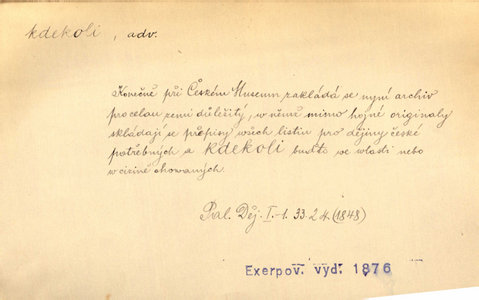 kdekoli, adv.
Konečně při Českém Museum zakládá se nyní archiv
pro celau zemi důležitý, w němž mimo hojné originaly
skládají se přepisy wšech listin pro dějiny české
potřebných a kdekoli buďto we wlasti nebo
w cizině chowaných.
Pal. Děj. I.-1. 33.24. (1848)
Exerpov. vyd. 1876